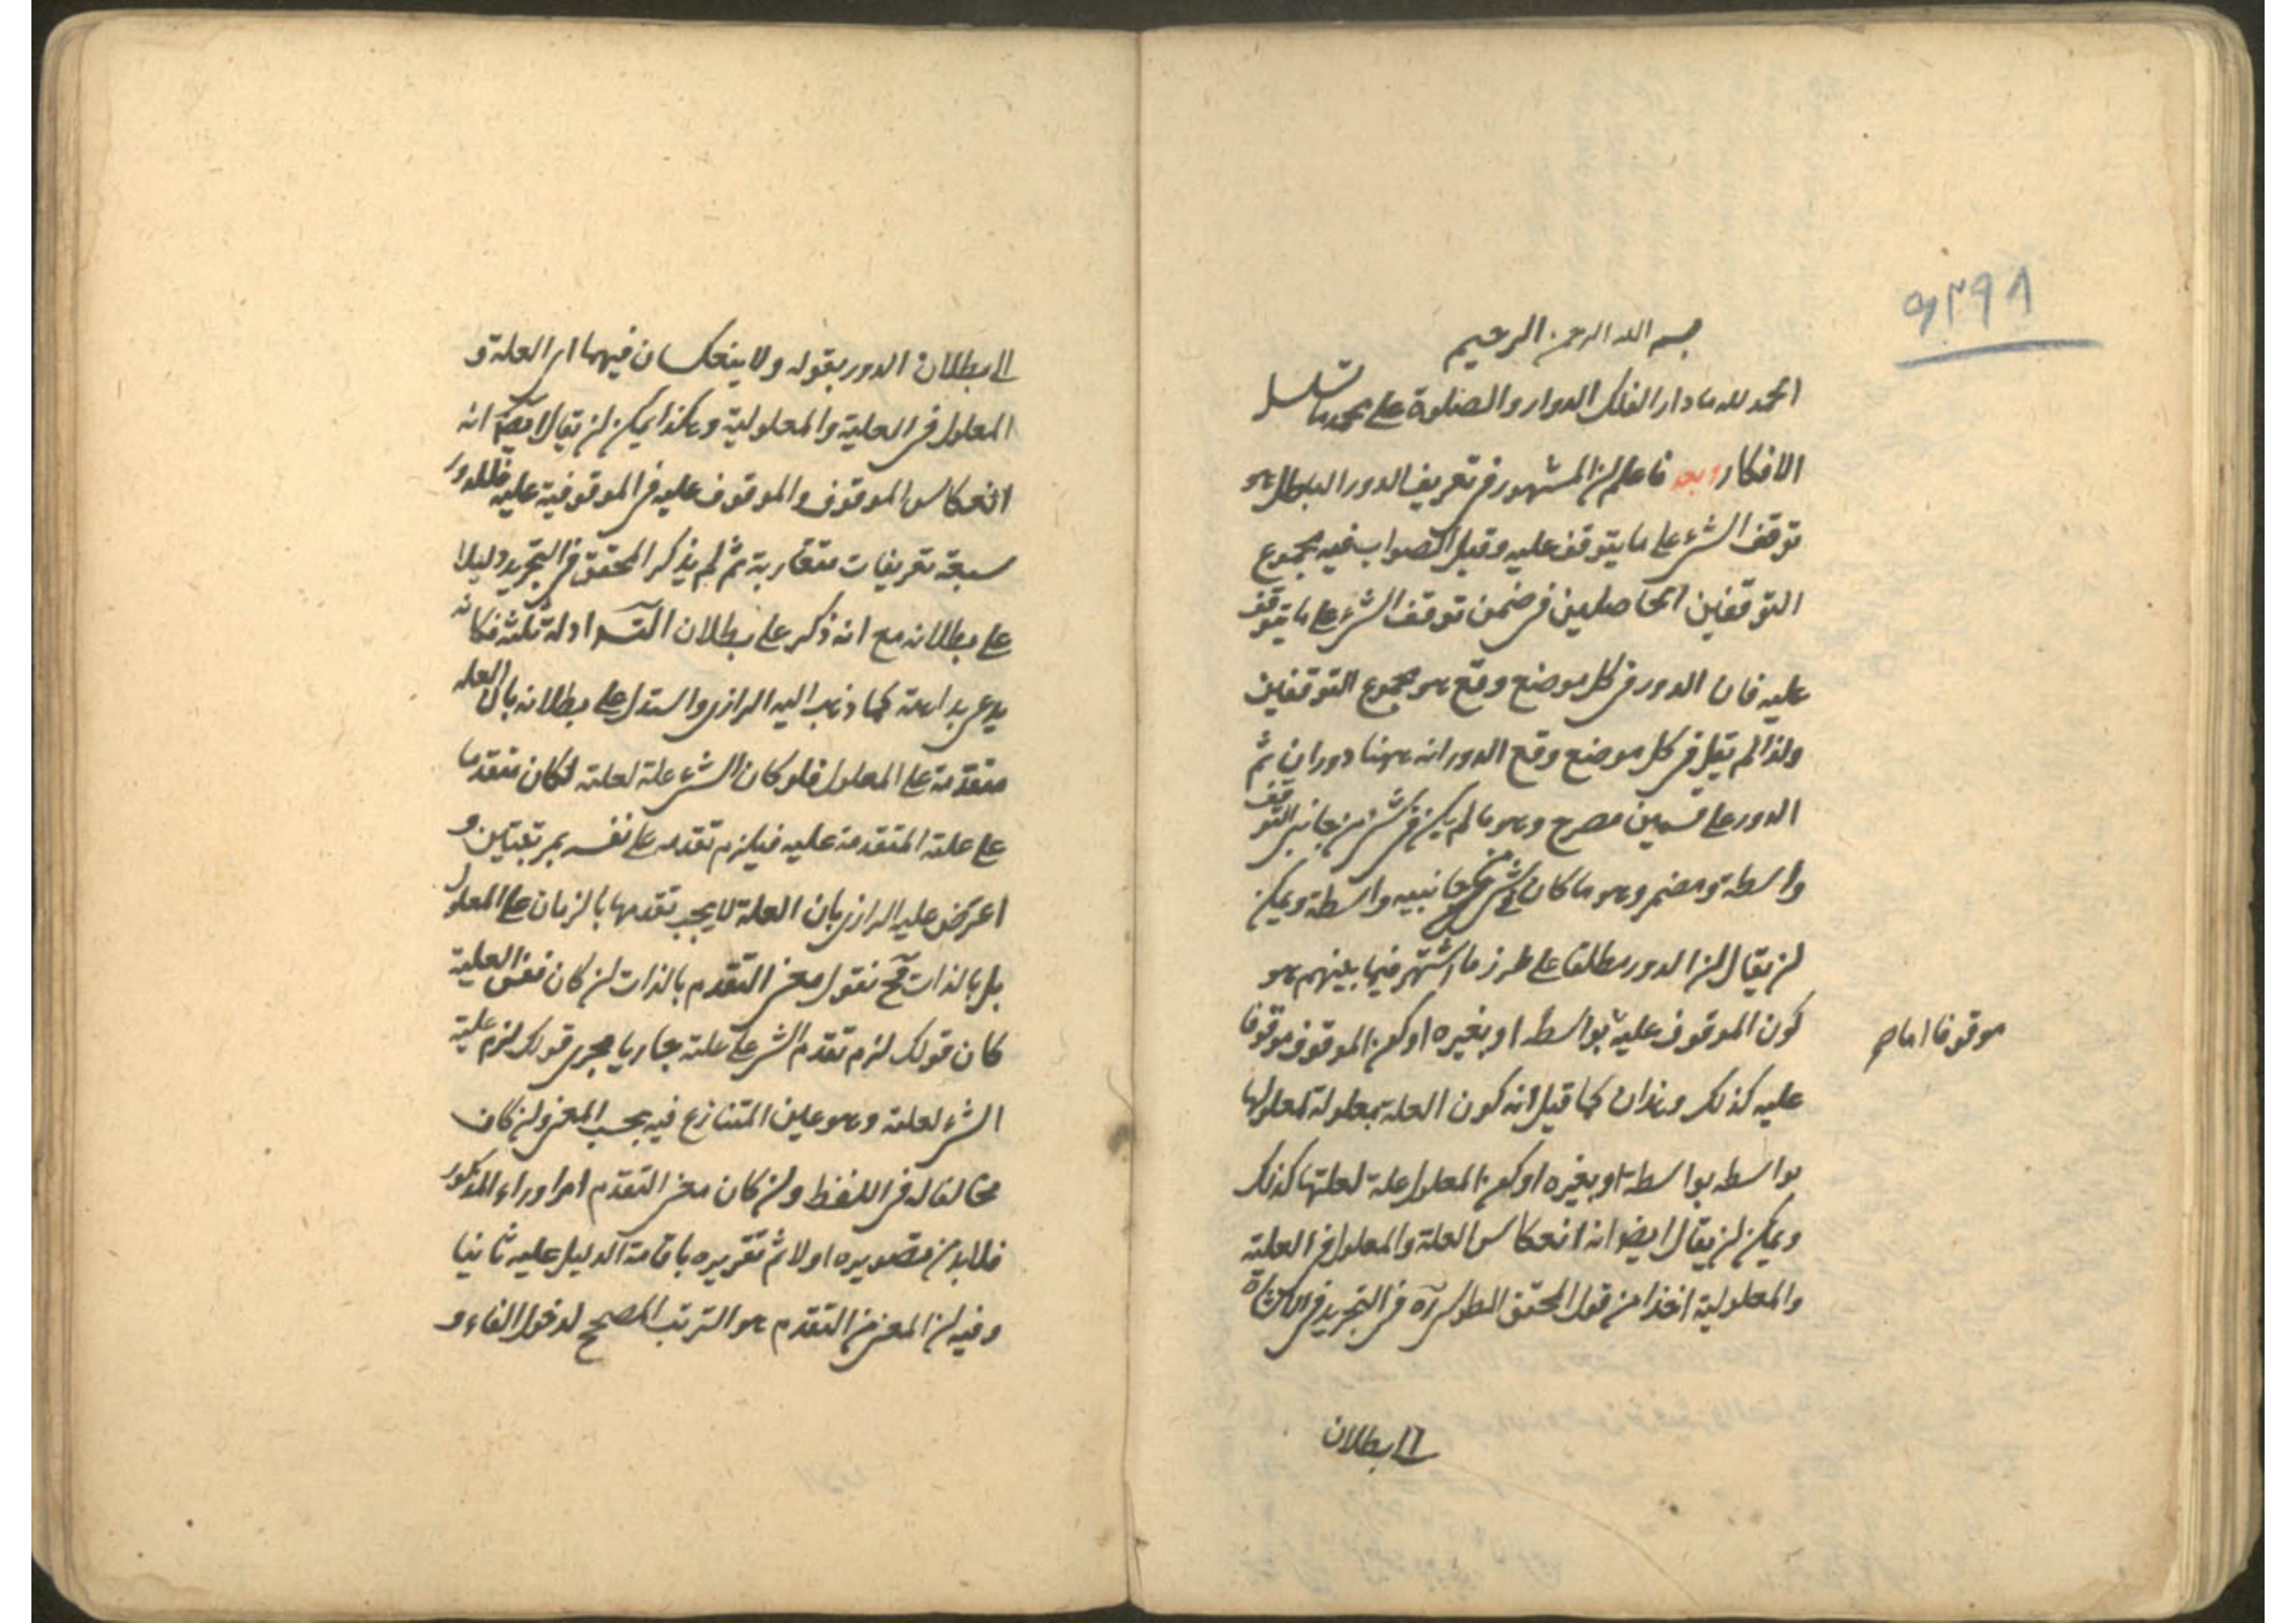 ٩٢٩٨
بسم الله الرحمن الرحيم
الحمد لله ما دار الفلك الدوار والصلوة على محمد ما تسلسل
الافكار وبعد فاعلم ان المشهور فى تعريف الدور الباطل هو
توقف الشئ على ما يتوقف عليه وقيل الصواب فيه مجموع
التوقفين الحاصلين فى ضمن توقف الشئ على ما يتوقف
عليه فان الدور فى كل موضع وقع هو مجموع التوقفين
ولذا لم يقل فى كل موضع وقع الدور انه ههنا دوران ثم
الدور على قسمين مصرح وهو ما لم يكن فى شئ من جانبى التوقف
واسطة ومضمر وهو ما كان فى شئ من جانبيه واسطة ويمكن
ان يقال ان الدور مطلقا على طرز ما اشتهر فيما بينهم هو
كون الموقوف عليه بواسطة او بغيره او كون الموقوف موقوفا
موقوفا اما
عليه كذلك وهذان كما قيل انه كون العلة معلولة لمعلولها
بواسطه بواسطة او بغيره او كون المعلول علة لعلتها كذلك
ويمكن ان يقال ايضا انه انعكاس العلة والمعلول فى العلية
والمعلولية اخذا من قول المحقق الطوسى فى التجريد فى الاشارة
الى بطلان
الى بطلان الدور بقوله ولا ينعكسان فيهما اى العلة و
المعلول فى العلية والمعلولية وهكذا يمكن ان يقال ايضا انه
انعكاس الموقوف والموقوف عليه فى الموقوفية عليه فللدور
سبعة تعريفات متقاربة ثم لم يذكر المحقق فى التجريد دليلا
على بطلانه مع انه ذكر على بطلان التس ادلة ثلثة فكانه
يدعى بداهته كما ذهب اليه الرازى واستدل على بطلانه بان العله
متقدمة على المعلول فلو كان الشئ علة لعلته لكان متقدما
على علته المتقدمة عليه فيلزم تقدمه على نفسه بمرتبتين و
اعترض عليه الرازى بان العلة لا يجب تقدمها بالزمان على المعلول
بل بالذات فح نقول معنى التقدم بالذات ان كان نفس العلية
كان قولك لزم تقدم الشئ على علته جاريا مجرى قولك لزم علية
الشئ لعلته وهو عين المتنازع فيه بحسب المعنى وان كان
مخالفا له فى اللفظ وان كان معنى التقدم امرا وراء المذكور
فلا بد من تصويره اولا ثم تقريره باقامة الدليل عليه ثانيا
وفيه ان المعنى من التقدم هو الترتب المصحح لدخول الفاء و